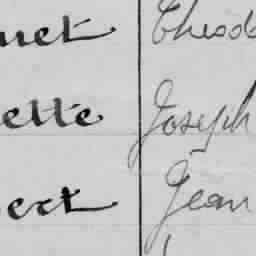 uet Théod
ette Joseph
bert Jean